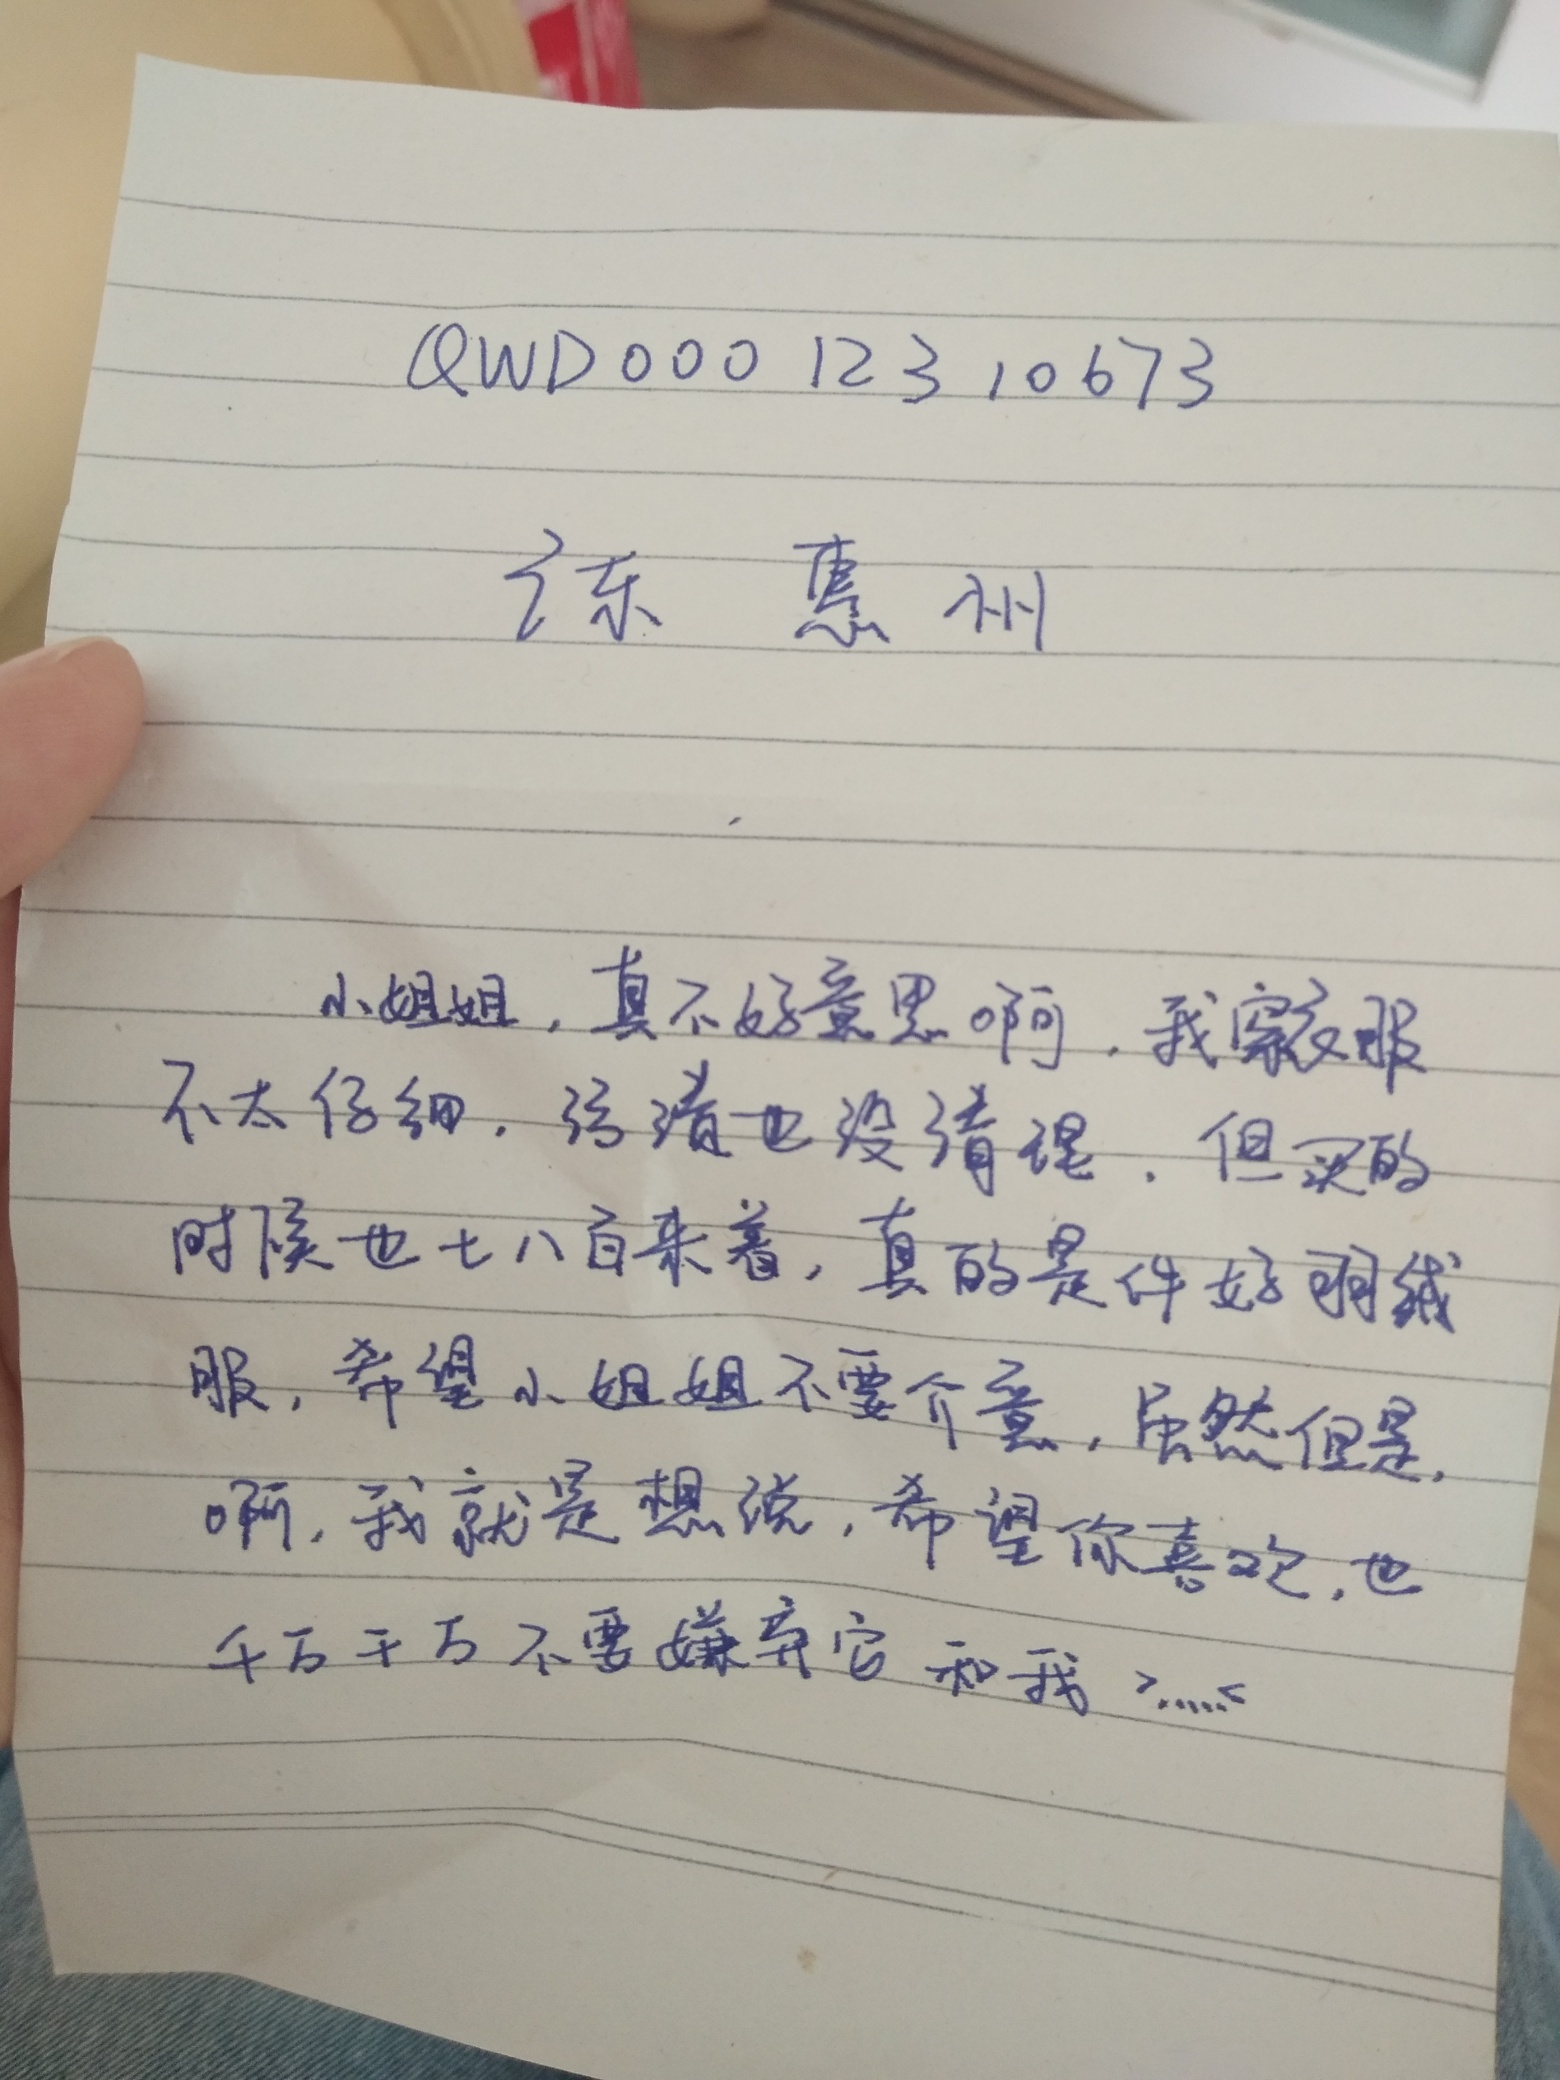 QWD00012310673
广东 惠州
小姐姐，真不好意思啊，我穿衣服
不太仔细，污渍也没清理，但买的
时候也七八百来着，真的是件好羽绒
服，希望小姐姐不要介意，虽然但是，
啊，我就是想说，希望你喜欢，也
千万千万不要嫌弃它和我 >.....<